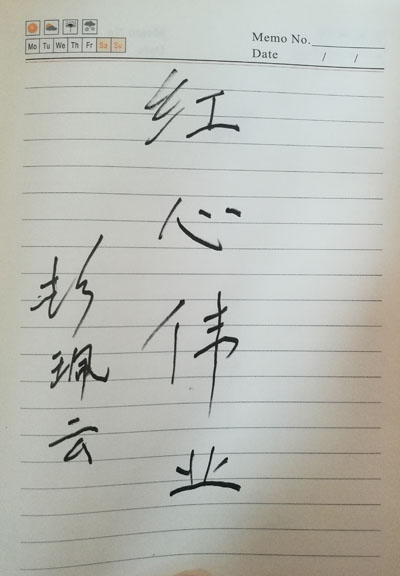 Memo No.
Date / /
Mo Tu We Th Fr Sa Su
红心伟业
彭珮云